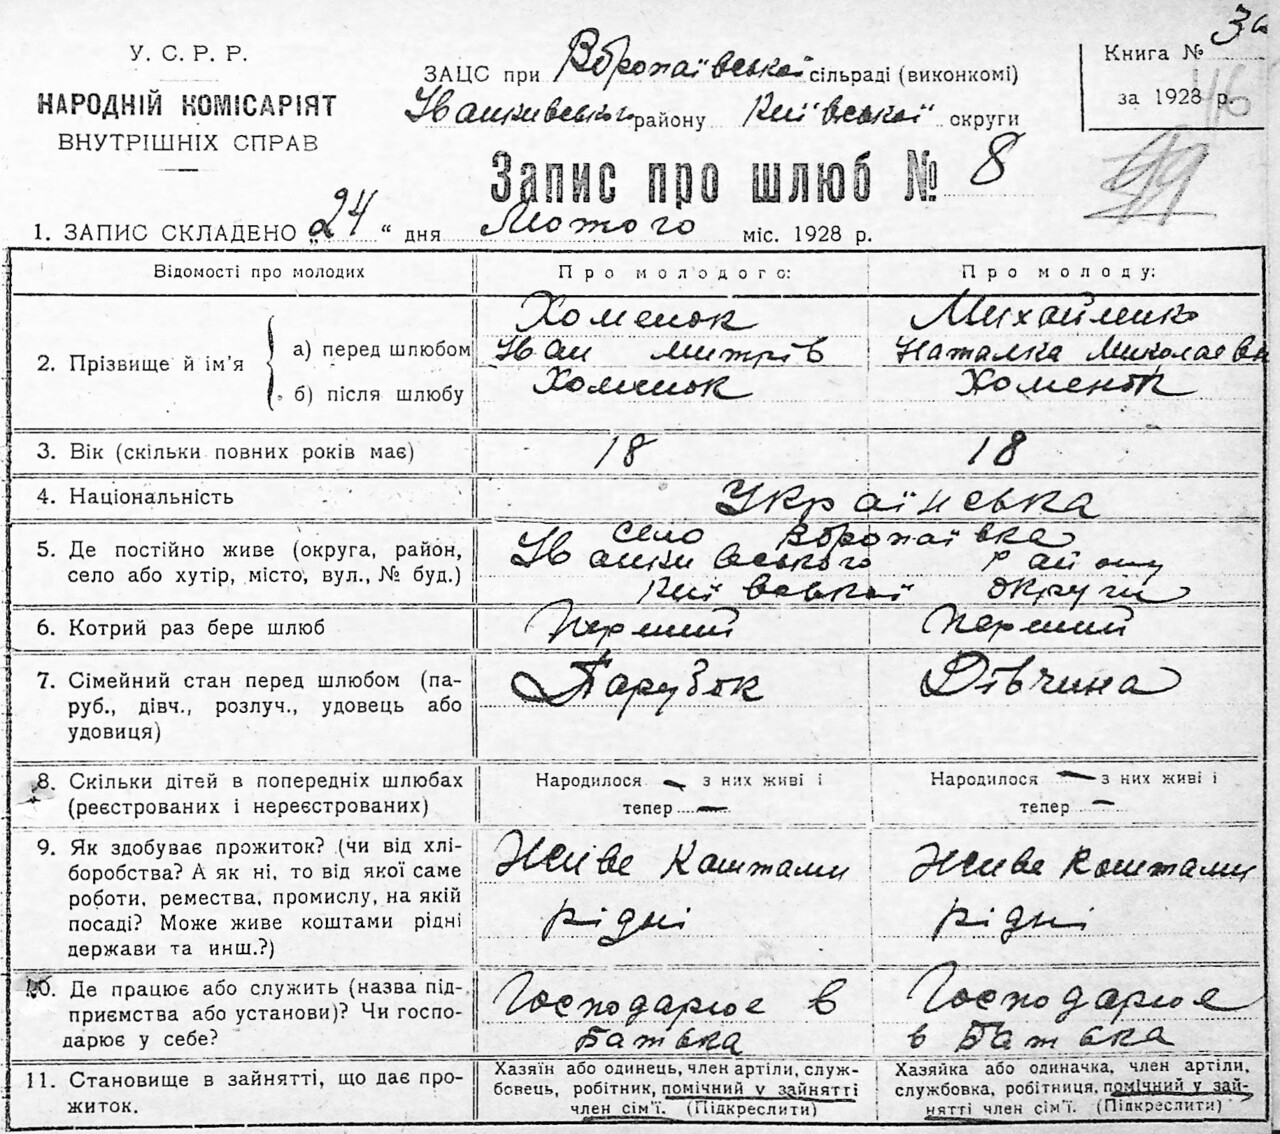 У. С. Р. Р.
НАРОДНІЙ КОМІСАРІЯТ
ВНУТРІШНІХ СПРАВ
ЗАЦС при Воропаївської сільраді (виконкомі)
Іванківського району Київської округи
Книга №
за 1928 р.
46
49
Запис про шлюб № 8
1. ЗАПИС СКЛАДЕНО „24“ дня Лютого міс. 1928 р.
Відомості про молодих
Про молодого:
Про молоду:
2. Прізвище й ім'я
а) перед шлюбом
Хоменок
Іван Митрів
Михайленко
Наталка Миколаєвна
б) після шлюбу
Хоменок
Хоменок
3. Вік (скільки повних років має)
18
18
4. Національність
Українська
5. Де постійно живе (округа, район,
село або хутір, місто, вул., № буд.)
село Воропаївка
Іванківського району
Київської округи
6. Котрий раз бере шлюб
Перший
Перший
7. Сімейний стан перед шлюбом (па-
руб., дівч., розлуч., удовець або
удовиця)
Парубок
Дівчина
8. Скільки дітей в попередніх шлюбах
(реєстрованих і нереєстрованих)
Народилося — з них живі і
тепер —
Народилося — з них живі і
тепер —
9. Як здобуває прожиток? (чи від хлі-
боробства? А як ні, то від якої саме
роботи, ремества, промислу, на якій
посаді? Може живе коштами рідні
держави та инш.?)
Живе коштами
рідні
Живе коштами
рідні
10. Де працює або служить (назва під-
приємства або установи)? Чи госпо-
дарює у себе?
Господарює в
батька
Господарює
в батька
11. Становище в зайнятті, що дає про-
житок.
Хазяїн або одинець, член артіли, служ-
бовець, робітник, помічний у зайнятті
член сім'ї. (Підкреслити)
Хазяйка або одиначка, член артіли,
службовка, робітниця, помічний у зай-
нятті член сім'ї. (Підкреслити)